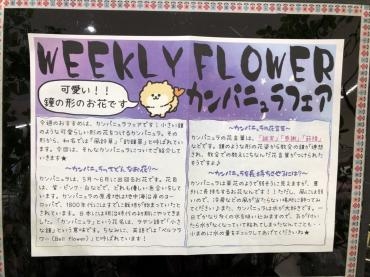 WEEKLY FLOWER
可愛い!!
鐘の形のお花です
カンパニュラフェア
今週のおすすめは、カンパニュラフェアです!小さい鐘
のような可愛らしい形の花をつけるカンパニュラ。その
形から、和名では「風鈴草」と「釣鐘草」とも呼ばれてい
ます。今回は、そんなカンパニュラについてご紹介して
いきます★
〜カンパニュラってどんなお花?〜
カンパニュラは、5月〜6月に出回るお花です。花色
は、紫・ピンク・白などで、どれも優しい色合いをして
います。カンパニュラの原産地は地中海沿岸のヨー
ロッパで、1800年代にはすでに栽培が始まっていたと
されています。日本には明治時代の初期にやってきま
した。「カンパニュラ」という花名は、ラテン語で「小さ
な鐘」という意味です。ちなみに、英語では「ベルフラ
ワー(Bell flower)」と呼ばれています!
〜カンパニュラの花言葉〜
カンパニュラの花言葉は、「誠実」「感謝」「節操」
などです。鐘のような花の形姿から教会の鐘が連想
され、教会での教えにちなんだ花言葉がつけられたそ
うですよ♪
〜カンパニュラを長く持ちさせるには?〜
カンパニュラは草花のようで弱そうに見えますが、意
外に長持ちするお花なんです!!ただし、風には弱い
ので、冷房などの風が当たらない場所に飾ってみ
てくださいね♪また、カンパニュラは水が大好きです。